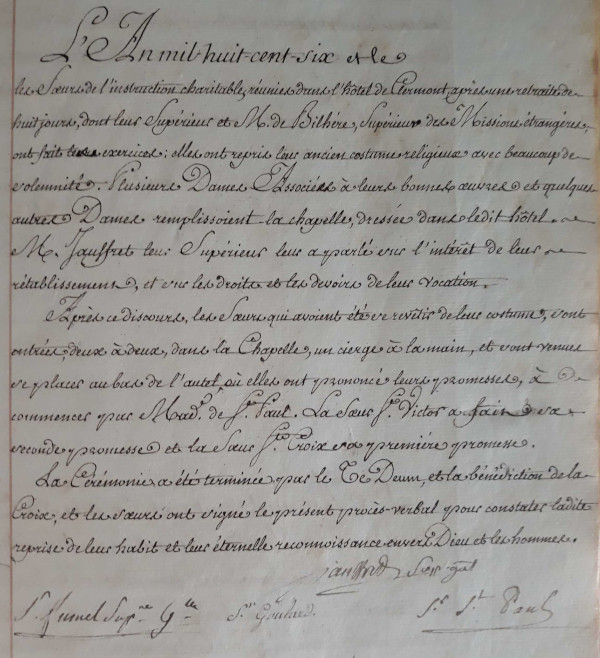 L'An mil huit-cent-six et le
les Sœurs de l'instruction charitable, réunies dans l'hôtel de Clermont, après une retraite de
huit jours, dont leur Supérieur et M. de Bilhère, Supérieur des Missions étrangères,
ont fait les exercices : elles ont repris leur ancien costume religieux avec beaucoup de
solemnité. Plusieurs Dames Associées à leurs bonnes œuvres et quelques
autres Dames remplissoient la chapelle, dressée dans ledit hôtel.
M. Jauffret leur Supérieur leur a parlé sur l'intérêt de leur
rétablissement, et sur les droits et les devoirs de leur vocation.
Après ce discours, les Sœurs qui avoient été se revêtir de leur costume, sont
entrées, deux à deux, dans la Chapelle, un cierge à la main, et sont venues
se placer au bas de l'autel, où elles ont prononcé leurs promesses, à
commencer par Mad.e de St. Paul. La Sœur St. Victor a fain sa
seconde promesse et la Sœur Ste. Croix sa première promesse.
La Cérémonie a été terminée par le Te Deum, et la bénédiction de la
Croix, et les sœurs ont signé le présent procès-verbal pour constater ladite
reprise de leur habit et leur éternelle reconnoissance envers Dieu et les hommes.
Jauffret Sup. gal
Sr Sup.re G.lle Sr Goulard. Sr St Paul